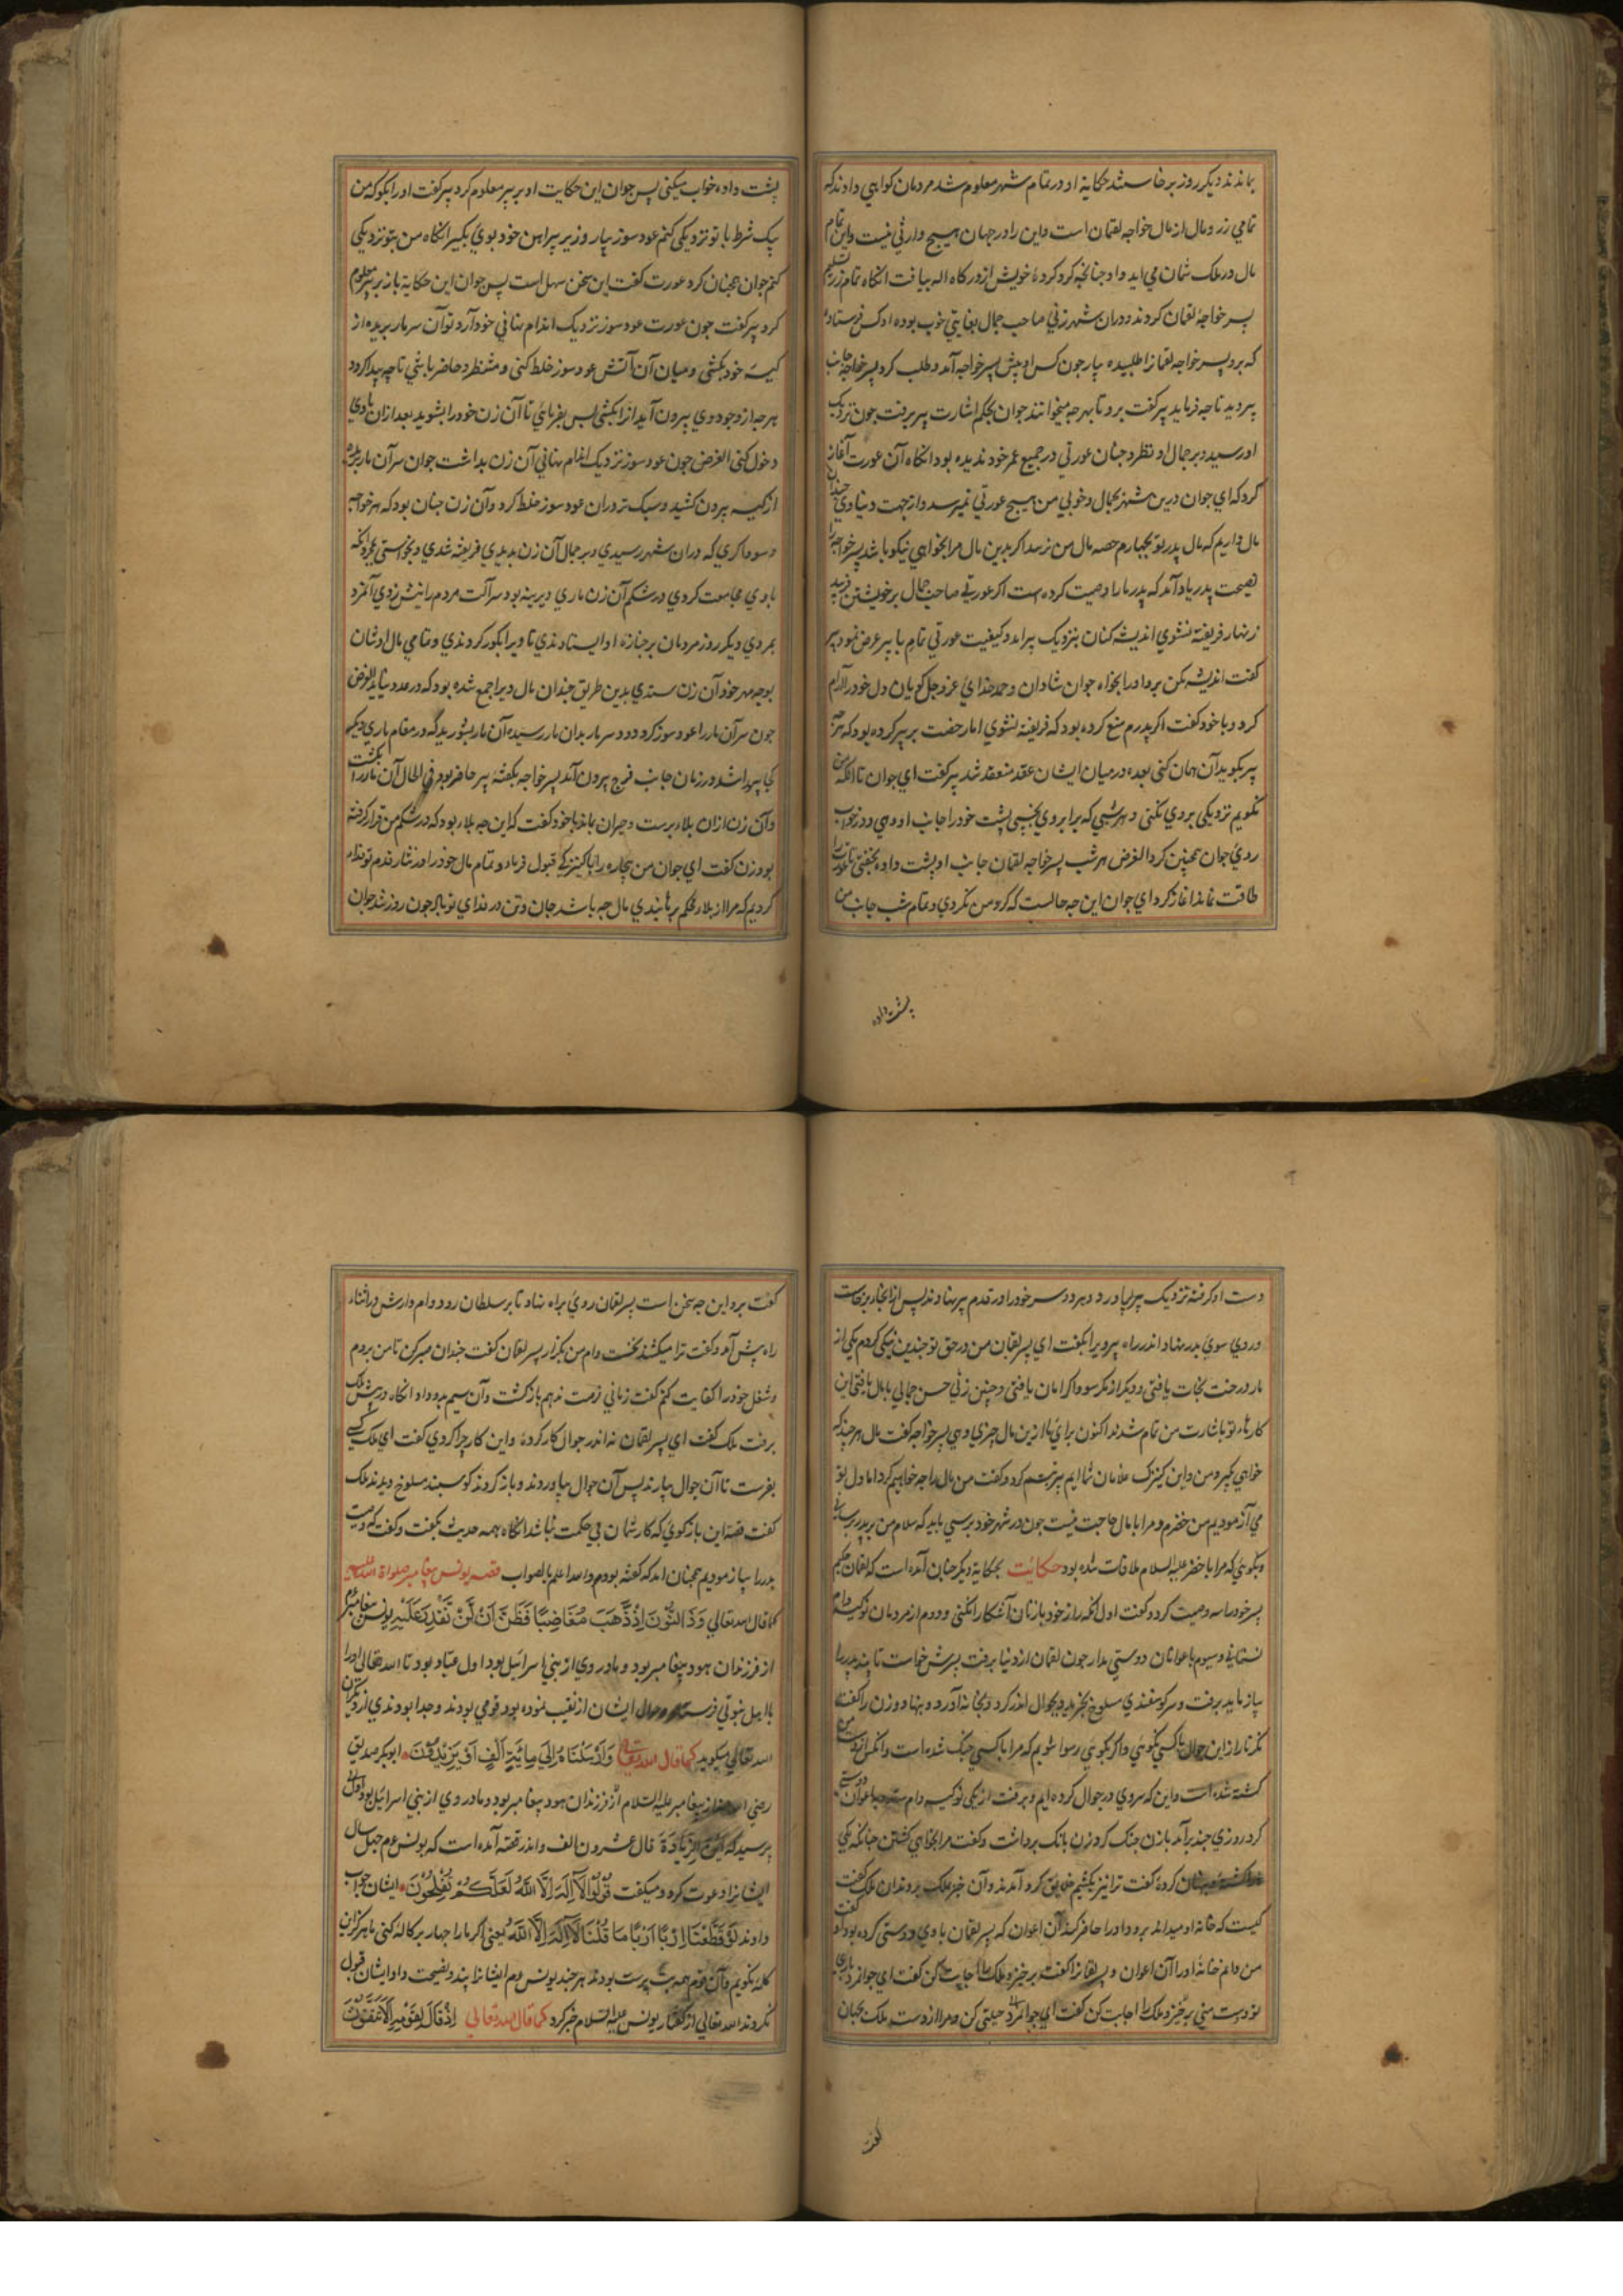 بماندند دیکر روز برخاستند حکایة او در تمام شهر معلوم شد مردمان کواهي دادند که
تمامي زر و مال از مال خواجه لقمان است و این را در جهان هیچ وارثي نیست و این تمام
مال در ملک شمان مي اید داد چنانچه کرد کردهٔ خویش از درکاه اله بیافت انکاه تمام زر تسلیم
پسر خواجهٔ لقمان کردند و دران شهر زني صاحب جمال بغایتي خوب بوده او کس فرستاد
که برو پسر خواجه لقمانرا طلبیده بیار چون کس او پیش پسر خواجه آمد و طلب کرد پسر خواجه جانب
پیر دید تا چه فرماید پیر کفت برو تا بهر چه میخوانند جوان بحکم اشارت پیر برفت چون نزدیک
او رسید و بر جمال او نظر کرد چنان عورتي در جمیع عمر خود ندیده بود انکاه آن عورت آغاز
کرد که اي جوان درین شهر بجمال و خوبي من هیچ عورتي نمیرسد و از جهت دنیاوي چندان
مال داریم که مال پدر تو بچهارم حصه مال من نرسد اکر بدین مال مرا بخواهي نیکو باشد پسر خواجه را
نصیحت پدر یاد آمد که پدر ما را وصیت کرده است اکر عورتي صاحب جمال بر خویشتن فریبد
زنهار فریفته نشوي اندیشه کنان بنزدیک پیر امد و کیفیت عورتي تمام با پیر عرض نمود پیر
کفت اندیشه مکن برو او را بخواه جوان شادان و حمد خداي عز و جل کویان دل خود را آرام
کرد و با خود کفت اکر پدرم منع کرده بود که فریفته نشوي اما رخصت بر پیر کرده بود که هر چه
پیر بکوید آن همان کني بعده درمیان ایشان عقد منعقد شد پیر کفت اي جوان تا انکه من
نکویم نزدیکي بروي نکني و هر شبي که برابر وي بخسپي پشت خود را جانب او دهي و در خواب
روي جوان همچنین کرد الغرض هر شب پسر خواجه لقمان جانب او پشت داده بخفتي تا عورت را
طاقت نماند اغاز کرد اي جوان این چه حالست که کرد من نکردي و تمام شب جانب من
پشت داده
پشت داده خواب میکني پس جوان این حکایت او بر پیر معلوم کرد پیر کفت او را بکو که من
یک شرط با تو نزدیکي کنم عود سوز بیار و زیر پیراهن خود بوي بکیر انکاه من بتو نزدیکي
کنم جوان همچنان کرد عورت کفت این سخن سهل است پس جوان این حکایة باز بر پیر معلوم
کرد پیر کفت چون عورت عود سوز نزدیک اندام نهاني خود آرد تو آن سر مار بریده از
کیسهٔ خود بکشي و میان آن آتش عود سوز خلط کني و منتظر و حاضر باشي تا چه پیدا کردد
هر چه از وجود وي بیرون آید انرا بکشي پس بفرمائي تا آن زن خود را بشوید بعد ازان با وي
دخول کني الغرض چون عود سوز نزدیک اندام نهاني آن زن بداشت جوان سر آن مار بریده
از کیسه بیرون کشید و سبک تر دران عود سوز خلط کرد و آن زن چنان بود که هر خواجه
و سوداکري که دران شهر رسیدي و بر جمال آن زن بدیدي فریفته شدي و بخواستي بمجرد انکه
با وي مجامعت کردي در شکم آن زن ماري دیرینه بود سر آلت مردم را نیش زدي آنمرد
بمردي دیکر روز مردمان بر جنازه او ایستادندي تا ویرا بکور کردندي و تمامي مال او شان
بوجه مهر خود آن زن ستدي بدین طریق چندان مال ویرا جمع شده بود که در عدد نیاید الغرض
چون سر آن مار را عود سوز کرد و دود سر مار بدان مار رسیده آن مار بشورید که در مقام ماري دیکر
کجا پیدا شد در زمان جانب فرج بیرون آمد پسر خواجه بکفتهٔ پیر حاضر بود في الحال آن مار را بکشت
و آن زن ازان بلا برست و حیران بماند با خود کفت که این چه بلا بود که در شکم من قرار کرفته
بود زن کفت اي جوان من بیچاره را با کنیزکي قبول فرماد و تمام مال خود را در نثار قدم تو فدا
کردیم که مرا از بلا محکم برهانیدي مال چه باشد جان و تن در فداي تو باد چون روز شد جوان
دست او کرفته نزدیک پیر بیاورد و هر دو سر خود را در قدم پیر نهادند پس از انجا برخاست
و روي سوي پدر نهاد اندر راه پیر ویرا بکفت اي پسر لقمان من در حق تو چندین نیکي کردم یکي از
مار درخت نجات یافتي و دیکر از مکر سوداکر امان یافتي و چنین زني حسن جمالي با مال یافتي این
کارهاء تو باشارت من تمام شدند اکنون براي ما ازین مال چیزي دهي پسر خواجه کفت مال هر چند که
خواهي بکیر و من و این کنیزک غلامان شما ایم پیر تبسم کرد و کفت من مال را چه خواهیم کرد اما دل تو
مي آزمودیم من خضرم و مرا با مال حاجت نیست چون در شهر خود برسي باید که سلام من بر پدر رساني
و بکوئي که مرا با خضر علیه السلام ملاقات شده بود حکایت بحکایة دیکر چنان آمده است که لقمان حکیم
پسر خود را سه وصیت کرد و کفت اول انکه راز خود با زنان آشکارا نکني و دوم از مردمان نو کیسه وام
نستاني و سیوم با عوانان دوستي مدار چون لقمان از دنیا برفت پسرش خواست تا پند پدر را
بیازماید برفت و سر کوسفندي مسلوخ بخرید و بجوال اندر کرد و بخانه آورد و بنهاد و زن را کفت
نکر تا راز این جوال با کسي نکوئي و اکر بکوئي رسوا شویم که مرا با کسي جنک شده است و انکس از دست من
کشته شده است و این که سروي در جوال کرده ایم و برفت از یکي نو کیسه وام ستد و با عوان دوستي
کرد روزي چند برآمد با زن جنک کرد زن بانک برداشت و کفت مرا بخواهي کشتن چنانکه یکي
کردهٔ کفت ترا نیز بکشیم خلایق کرد آمدند و آن خبر ملک بردند آن ملک کفت
کیست که خانه او میداند برود او را حاضر کند آن اعوان که پسر لقمان با وي دوستي کرده بود او کفت
من دانم خانهٔ او را آن اعوان و پسر لقمانرا کفته برخیز و ملک را اجابت کن کفت اي جوانمرد باري
تو دوست مني برخیز و ملک را اجابت کن کفت اي جوانمرد حیلتي کن و مرا از دست ملک بجهان
کفت
کفت برو این چه سخن است پسر لقمان روي براه نهاد تا بر سلطان رود وام دارش در اثناء
راه پیش آمد و کفت ترا میکشند نخست وام من بکزار پسر لقمان کفت چندان صبر کن تا من بروم
و شغل خود را کفایت کنم کفت زماني زمت ندهم بازکشت و آن سیم بدو داد انکاه در پیش ملک
برفت ملک کفت اي پسر لقمان نه اندر جوال کار کردهٔ و این کار چرا کردي کفت اي ملک کسي
بفرست تا آن جوال بیارند پس آن جوال بیاوردند و باز کردند کوسپند مسلوخ دیدند ملک
کفت قصه این بازکوي که کار شمان بي حکمت نباشد انکاه همه حدیث بکفت و کفت که وصیت
پدر را بیازمودیم همچنان امد که کفته بودم والله اعلم بالصواب قصه یونس پیغامبر صلواة الله علیه
کما قال الله تعالي وَذَا النُّونِ اِذْ ذَّهَبَ مُغَاضِبًا فَظَنَّ اَنْ لَّنْ نَّقْدِرَ عَلَیْهِ یونس پیغامبر
از فرزندان هود پیغامبر بود و مادر وي از بني اسرائیل بود اول عباد بود تا الله تعالي او را
با اهل نینوتي فرستاد و حال ایشان از نقیب نموده بود قومي بودند وجدا بودندي از دیکران
الله تعالي میکوید کما قال الله تعالي وَاَرْسَلْنَاهُ اِلَي مِائَةِ اَلْفٍ اَوْ یَزِیْدُوْنَ ابوبکر صدیق
رضي الله عنه از پیغامبر علیه السلام از فرزندان هود پیغامبر بود و مادر وي از بني اسرائیل بود اول
پرسید که این الزیادة قال عشرون الف و اندر قصه آمده است که یونس ع م چهل سال
ایشانرا دعوت کرد و میکفت قُوْلُوْا لَآ اِلٰهَ اِلَّا اللّٰهُ لَعَلَّکُمْ تُفْلِحُوْنَ ایشان جواب
دادند لَوْ قَطَّعْتَنَا اِرْبًا اِرْبًا مَا قُلْنَا لَآ اِلٰهَ اِلَّا اللّٰهُ یعني اکر ما را چهار پرکاله کني ما هرکز این
کلمه نکویم و آن قوم همه بت پرست بودند هر چند یونس ع م ایشانرا پند و نصیحت داد ایشان قبول
نکردند الله تعالي از کفتار یونس علیه السلام خبر کرد کما قال الله تعالي اِذْ قَالَ لِقَوْمِهٖ اَلَا تَتَّقُوْنَ